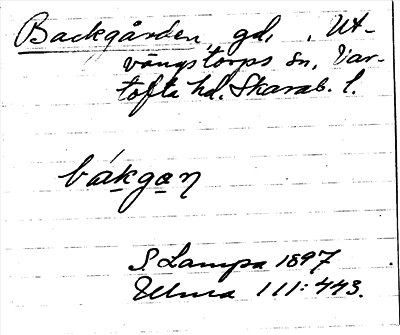 Backgården gd, Ut-
vängstorps sn, Var-
tofta hd. Skarab. l.
bákgan
S Lampa 1897
Ulma 111:443.